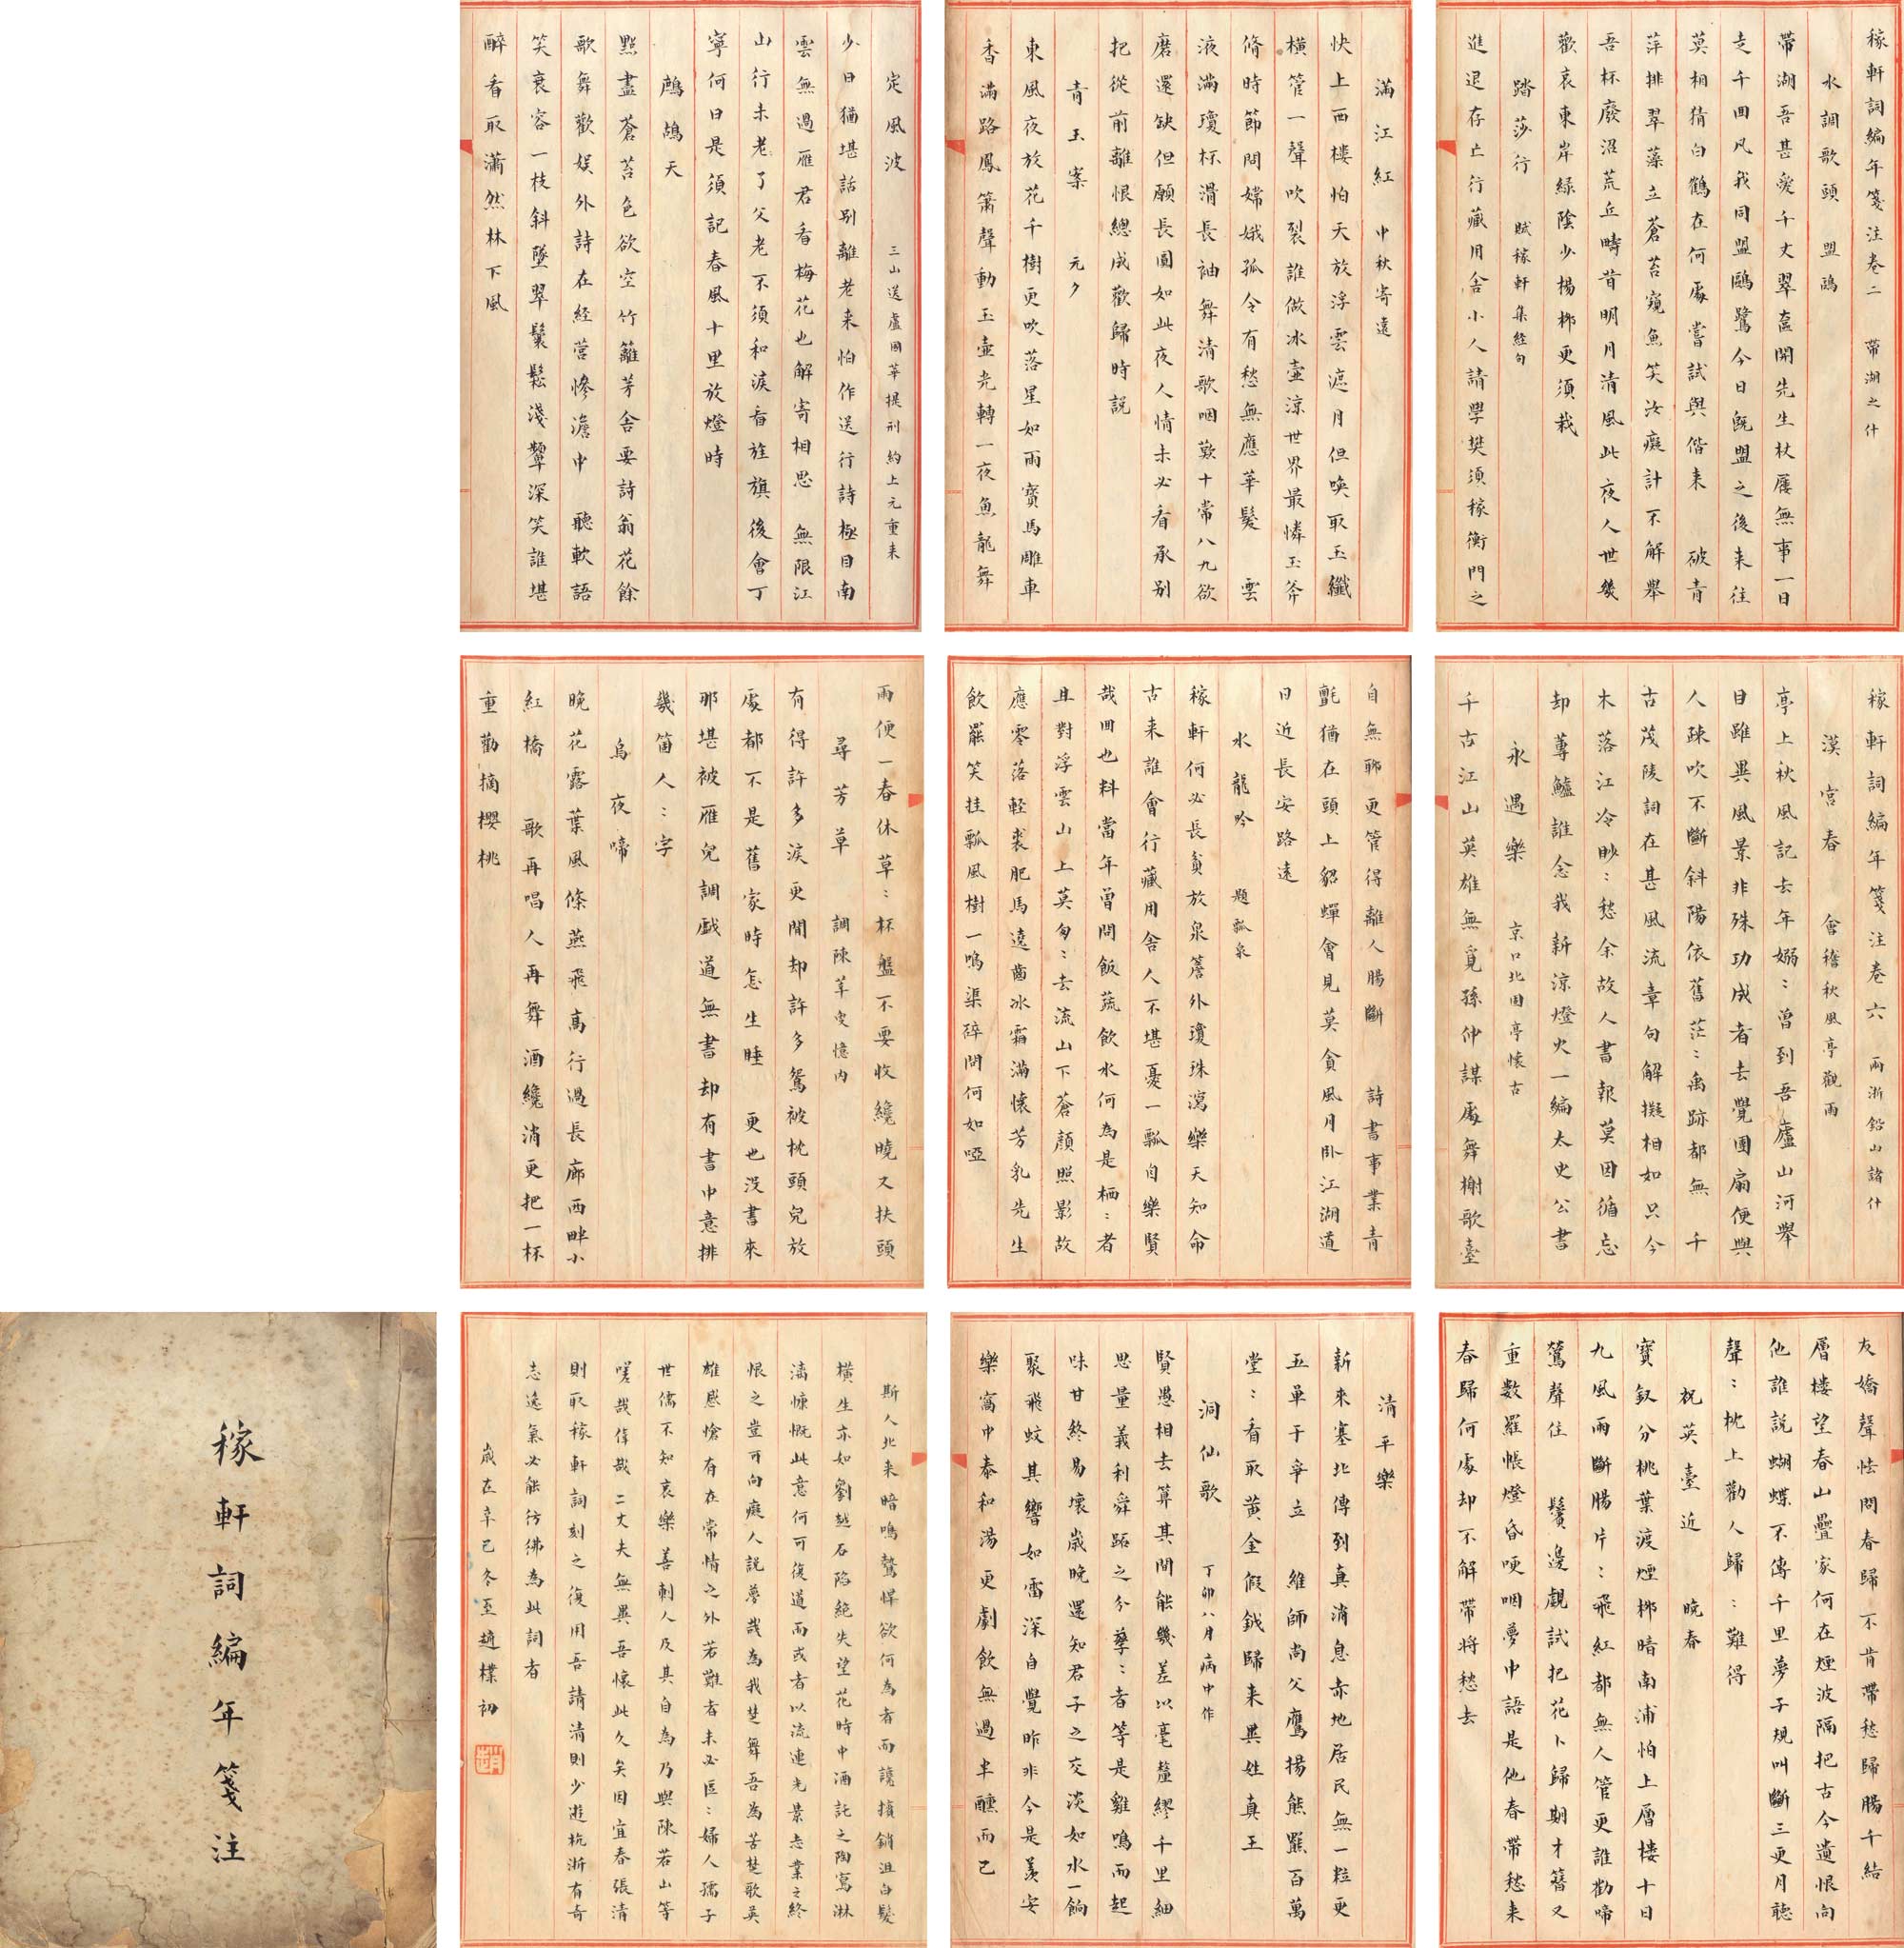 稼軒詞編年箋注卷二 帶湖之什
水調歌頭 盟鷗
帶湖吾甚愛千丈翠奩開先生杖屨無事一日
走千回凡我同盟鷗鷺今日既盟之後來往
莫相猜白鶴在何處嘗試與偕來 破青
萍排翠藻立蒼苔窺魚笑汝癡計不解舉
吾杯廢沼荒丘疇昔明月清風此夜人世幾
歡哀東岸綠陰少楊柳更須栽
踏莎行 賦稼軒集經句
進退存亡行藏用舍小人請學樊須稼衡門之
滿江紅 中秋寄遠
快上西樓怕天放浮雲遮月但喚取玉纖
橫管一聲吹裂誰做冰壺涼世界最憐玉斧
脩時節問嫦娥孤令有愁無應華髮 雲
液滿瓊杯滑長袖舞清歌咽歎十常八九欲
磨還缺但願長圓如此夜人情未必看承別
把從前離恨總成歡歸時說
青玉案 元夕
東風夜放花千樹更吹落星如雨寶馬雕車
香滿路鳳簫聲動玉壺光轉一夜魚龍舞
定風波 三山送盧國華提刑約上元重來
少日猶堪話別離老來怕作送行詩極目南
雲無過雁君看梅花也解寄相思 無限江
山行未老了父老不須和淚看旌旗後會丁
寧何日是須記春風十里放燈時
鷓鴣天
點盡蒼苔色欲空竹籬茅舍要詩翁花餘
歌舞歡娛外詩在經營慘澹中 聽軟語
笑衰容一枝斜墜翠鬟鬆淺顰深笑誰堪
醉看取瀟然林下風
稼軒詞編年箋注卷六 兩浙鉛山諸什
漢宮春 會稽秋風亭觀雨
亭上秋風記去年嫋〻曾到吾廬山河舉
目雖異風景非殊功成者去覺團扇便與
人疎吹不斷斜陽依舊茫〻禹跡都無 千
古茂陵詞在甚風流章句解擬相如只今
木落江冷眇〻愁余故人書報莫因循忘
卻蓴鱸誰念我新涼燈火一編太史公書
永遇樂 京口北固亭懷古
千古江山英雄無覓孫仲謀處舞榭歌臺
自無聊更管得離人腸斷 詩書事業青
氈猶在頭上貂蟬會見莫貪風月臥江湖道
日近長安路遠
水龍吟 題瓢泉
稼軒何必長貧放泉簷外瓊珠瀉樂天知命
古來誰會行藏用舍人不堪憂一瓢自樂賢
哉回也料當年曾問飯蔬飲水何為是栖〻者
且對浮雲山上莫匆〻去流山下蒼顏照影故
應零落輕裘肥馬遶齒冰霜滿懷芳乳先生
飲罷笑挂瓢風樹一鳴渠碎問何如啞
雨便一春休草〻杯盤不要收纔曉又扶頭
尋芳草 調陳莘叟憶內
有得許多淚更閒卻許多鴛被枕頭兒放
處都不是舊家時怎生睡 更也沒書來
那堪被雁兒調戲道無書卻有書中意排
幾箇人〻字
烏夜啼
晚花露葉風條燕飛高行過長廊西畔小
紅橋 歌再唱人再舞酒纔消更把一杯
重勸摘櫻桃
友嬌聲怯問春歸不肯帶愁歸腸千結
層樓望春山疊家何在煙波隔把古今遺恨向
他誰說蝴蝶不傳千里夢子規叫斷三更月聽
聲〻枕上勸人歸〻難得
祝英臺近 晚春
寶釵分桃葉渡煙柳暗南浦怕上層樓十日
九風雨斷腸片〻飛紅都無人管更誰勸啼
鶯聲住 鬢邊覷試把花卜歸期才簪又
重數羅帳燈昏哽咽夢中語是他春帶愁來
春歸何處卻不解帶將愁去
清平樂
新來塞北傳到真消息赤地居民無一粒更
五單于爭立 維師尚父鷹揚熊羆百萬
堂〻看取黃金假鉞歸來異姓真王
洞仙歌 丁卯八月病中作
賢愚相去算其間能幾差以毫釐繆千里細
思量義利舜跖之分孳〻者等是雞鳴而起
味甘終易壞歲晚還知君子之交淡如水一餉
聚飛蚊其響如雷深自覺昨非今是羨安
樂窩中泰和湯更劇飲無過半醺而已
斯人北來暗嗚鷙悍欲何為者而讒擯銷沮白髮
橫生亦如劉越石陷絕失望花時中酒託之陶寫淋
漓慷慨此意何可復道而或者以流連光景志業之終
恨之豈可向癡人說夢哉為我楚舞吾為若楚歌英
雄感愴有在常情之外若難者未必區〻婦人孺子
世儒不知哀樂善刺人及其自為乃與陳若山等
嗟哉偉哉二丈夫無異吾懷此久矣因宜春張清
則取稼軒詞刻之復用吾請清則少遊杭浙有奇
志逸氣必能彷彿為此詞者
歲在辛巳冬至趙樸初
趙
稼軒詞編年箋注